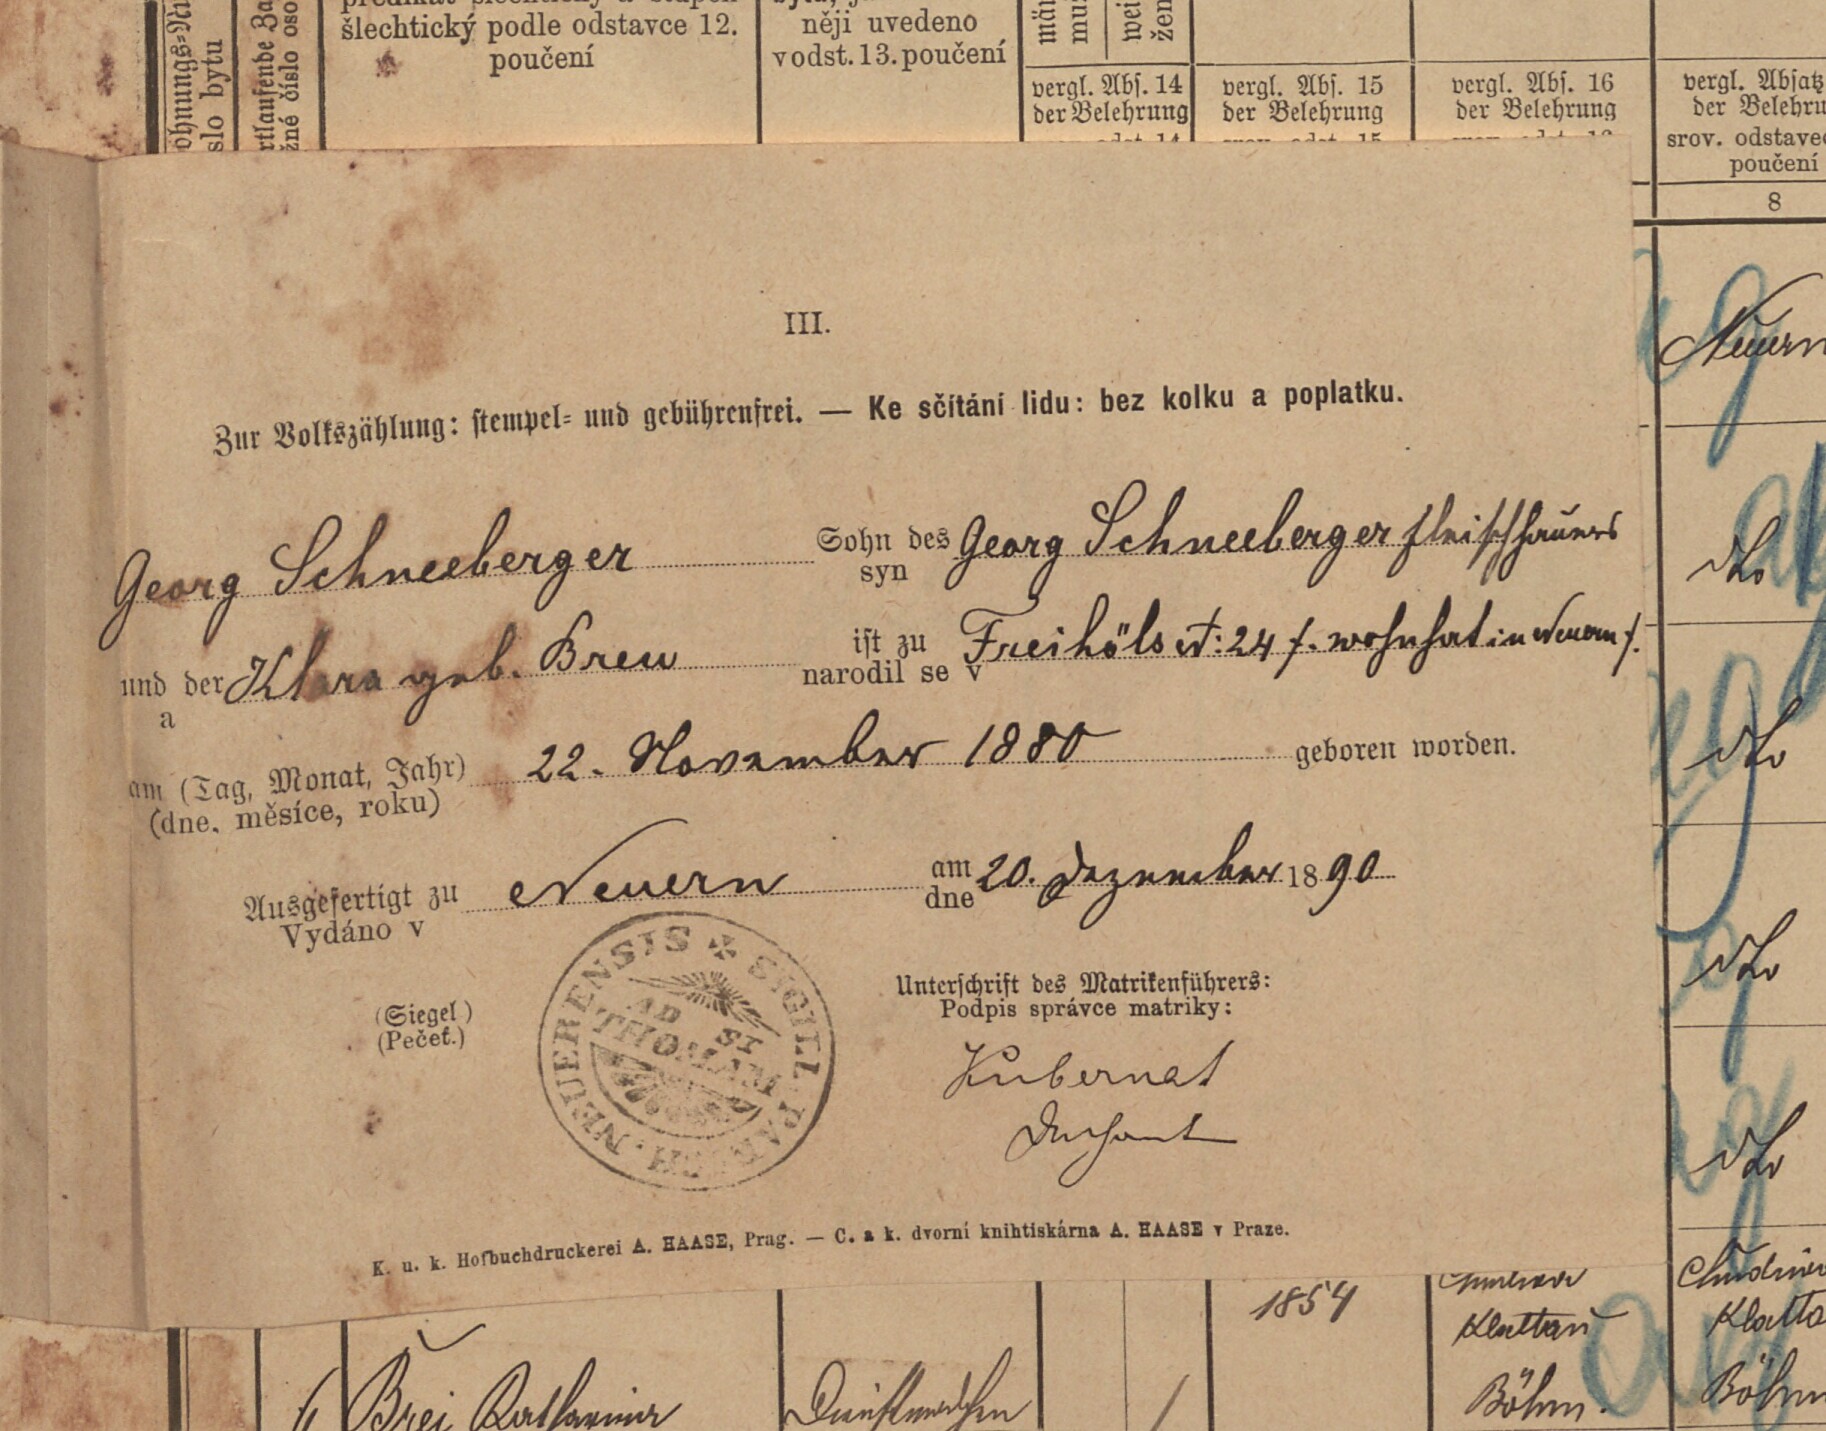 ohnungs-Nu
slo bytu
rtlaufende Za
žné číslo oso
šlechtický podle odstavce 12.
poučení
něji uvedeno
v odst. 13. poučení
vergl. Abs. 14
der Belehrung
vergl. Abs. 15
der Belehrung
vergl. Abs. 16
der Belehrung
vergl. Absatz
der Belehru
srov. odstavec
poučení
8
Neuern
dto
dto
dto
dto
III.
Zur Volkszählung: stempel- und gebührenfrei. — Ke sčítání lidu: bez kolku a poplatku.
Georg Schneeberger Sohn des Georg Schneeberger Fleischhauers
syn
und der Klara geb. Breu ist zu Freihöls N: 24 /. wohnhat in Neuern /.
a narodil se v
am (Tag, Monat, Jahr) 22. November 1880 geboren worden.
(dne, měsíce, roku)
Ausgefertigt zu Neuern am 20. Dezember 1890
Vydáno v dne
(Siegel)
(Pečeť.)
SIGILL. PAROCH. NEUERENSIS
AD ST
THOMAM
Unterschrift des Matrikenführers:
Podpis správce matriky:
Kubernat
Dechant
K. u. k. Hofbuchdruckerei A. HAASE, Prag. — C. a k. dvorní knihtiskárna A. HAASE v Praze.
1854
Klattau
Böhm.
Klatta
Böhm
6 Brei Katharina
1